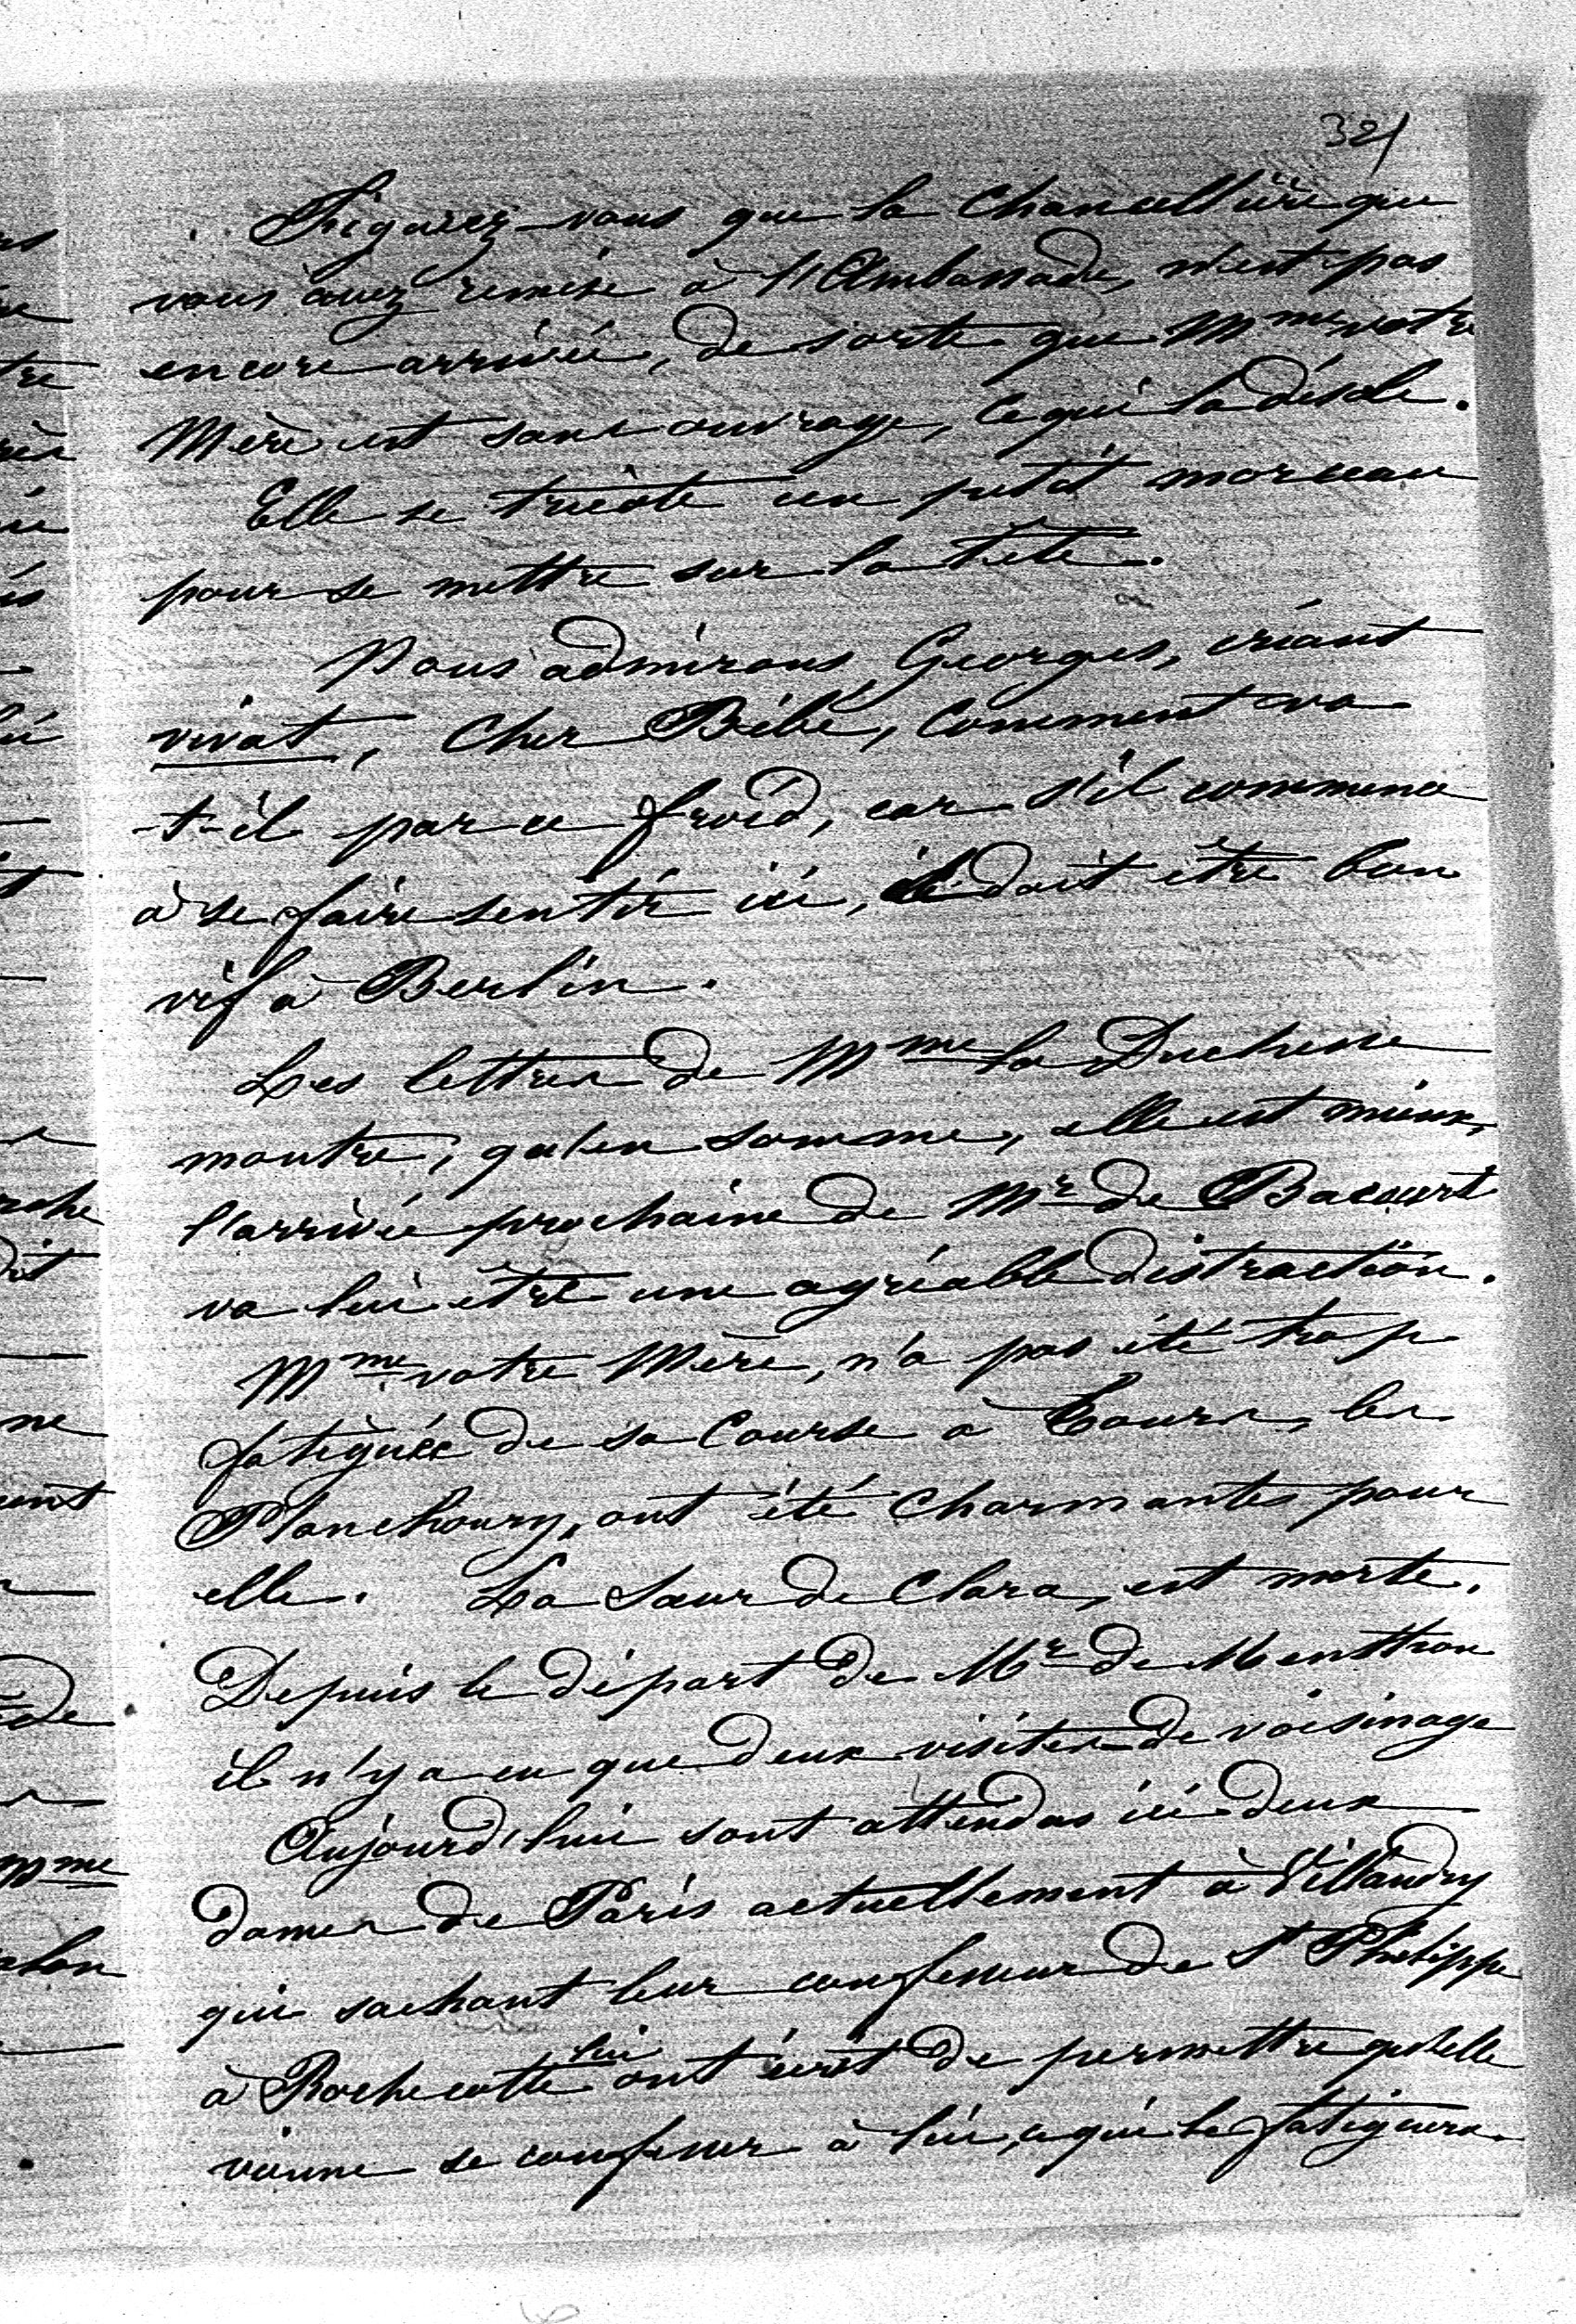 321
Figurez-vous que la Chancellière que
vous avez remise à l'Ambassade, n'est pas
encore arrivée, de sorte que Mme votre
Mère est sans ouvrage, ce qui la désole.
Elle se tricote un petit morceau
pour se mettre sur la tête.
Nous admirons Georges, criant
vivat, Cher Bébé, Comment va
-t-il par ce froid, car s'il commence
à se faire sentir ici, il doit être bien
vif à Berlin.
Les lettres de Mme la Duchesse
montre, qu'en somme, elle est mieux,
l'arrivée prochaine de Mr de Bacourt
va lui être une agréable distraction.
Mme votre Mère, n'a pas été trop
fatiguée de sa Course à Tours, les
Planchoury, ont été Charmantes pour
elle. La Sœur de Clara, est morte.
Depuis le départ de Mr de
il n'y a eu que deux visites de voisinage
Aujourd'hui sont attendus ici deux
dames de Paris actuellement à Villandry
qui sachant leur confesseur de St Philippe
à Rochecotte lui ont écrit de permettre qu'elle
vienne se confesser à lui, ce qui le fatiguera.